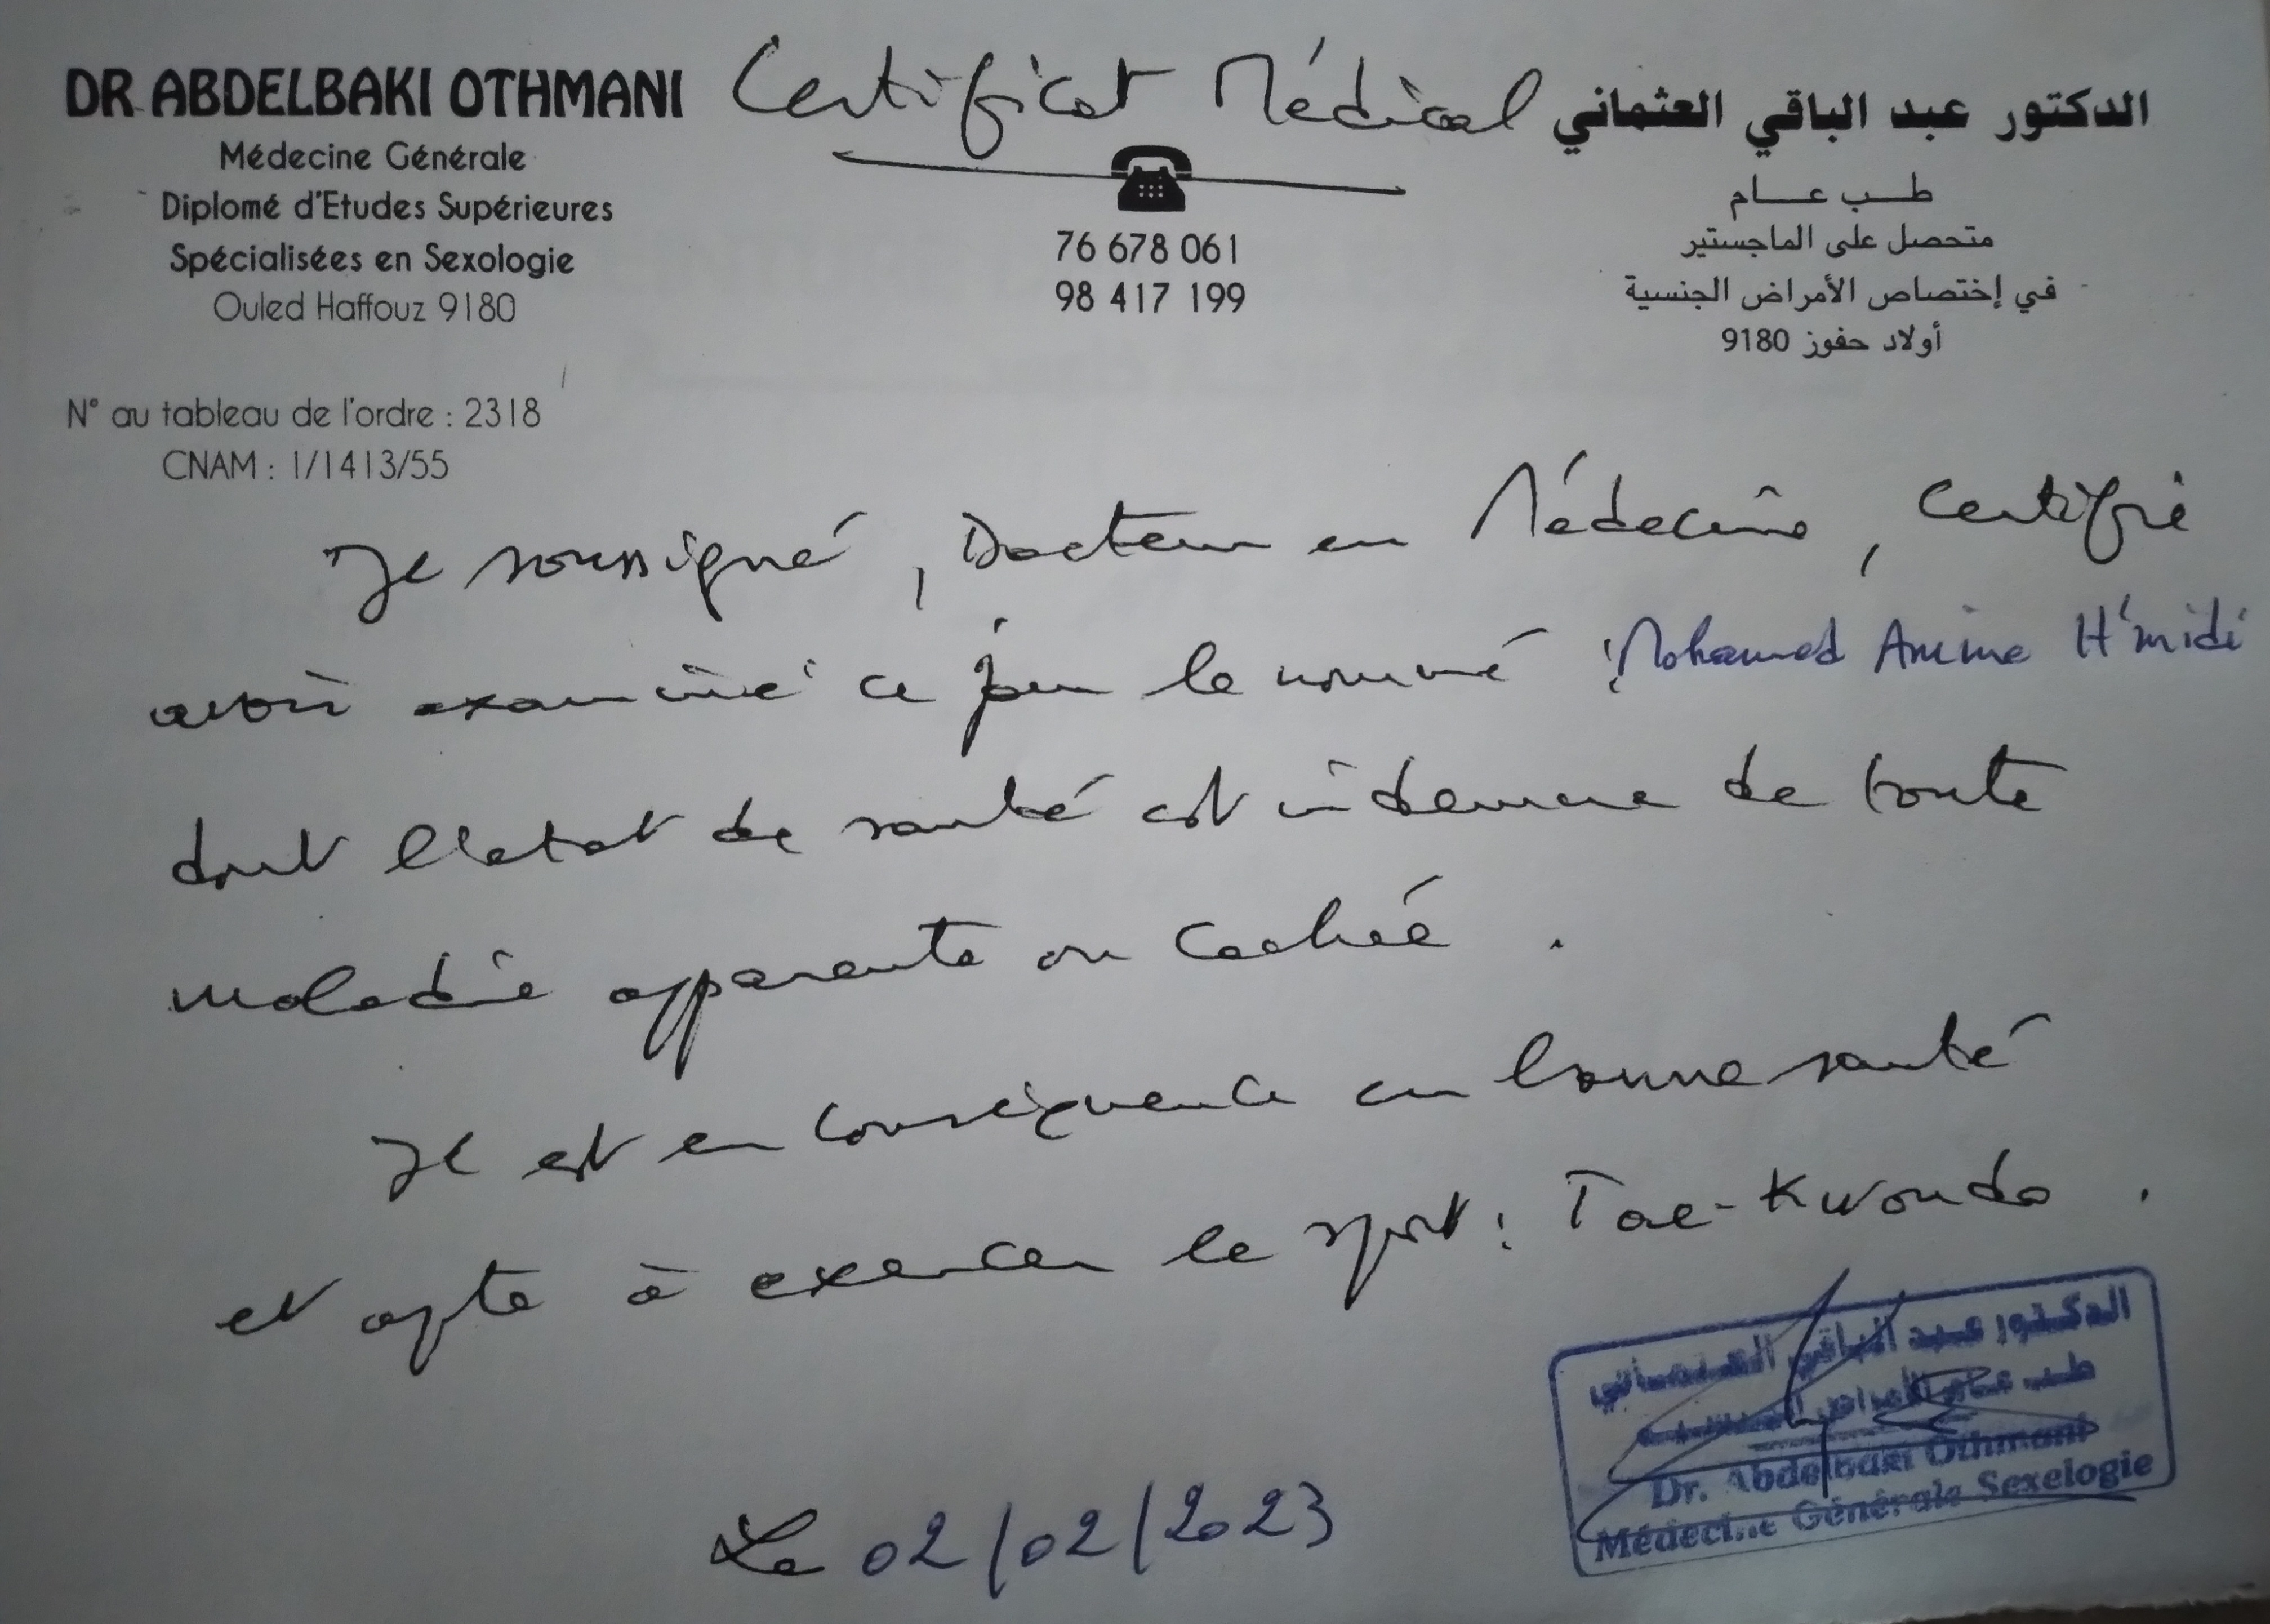 DR ABDELBAKI OTHMANI
Médecine Générale
Diplomé d'Etudes Supérieures
Spécialisées en Sexologie
Ouled Haffouz 9180
N° au tableau de l'ordre : 2318
CNAM : 1/1413/55
Certificat Médical
76 678 061
98 417 199
الدكتور عبد الباقي العثماني
طب عام
متحصل على الماجستير
في إختصاص الأمراض الجنسية
أولاد حفوز 9180
Je soussigné, Docteur en Médecine, certifie
avoir examiné ce jour le nommé : Mohamed Amine H'midi
dont l'etat de santé est indemne de toute
maladie apparente ou cachée .
Il est en conséquence en bonne santé
et apte à exercer le sport : Tae-Kwondo .
Le 02/02/2023
الدكتور عبد الباقي العثماني
طب عام الأمراض الجنسية
Dr. Abdelbaki Othmani
Médecine Générale Sexelogie